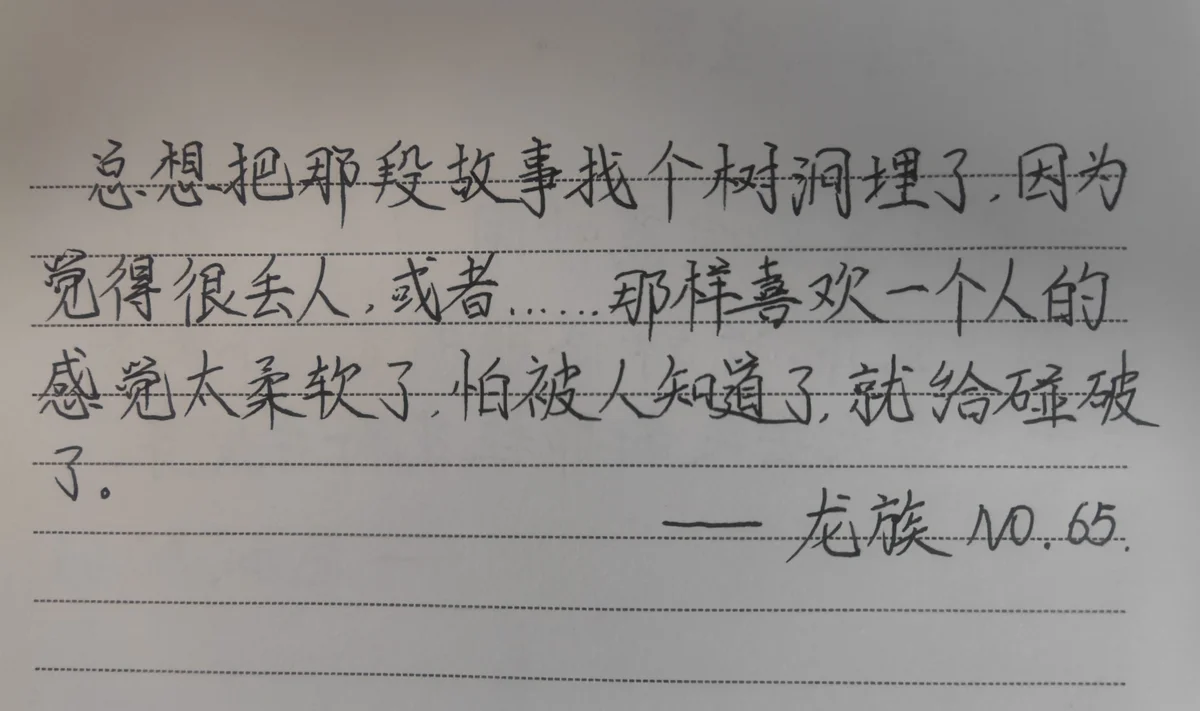 总想把那段故事找个树洞埋了,因为
觉得很丢人,或者……那样喜欢一个人的
感觉太柔软了,怕被人知道了,就给碰破
了。
—— 龙族 NO.65.